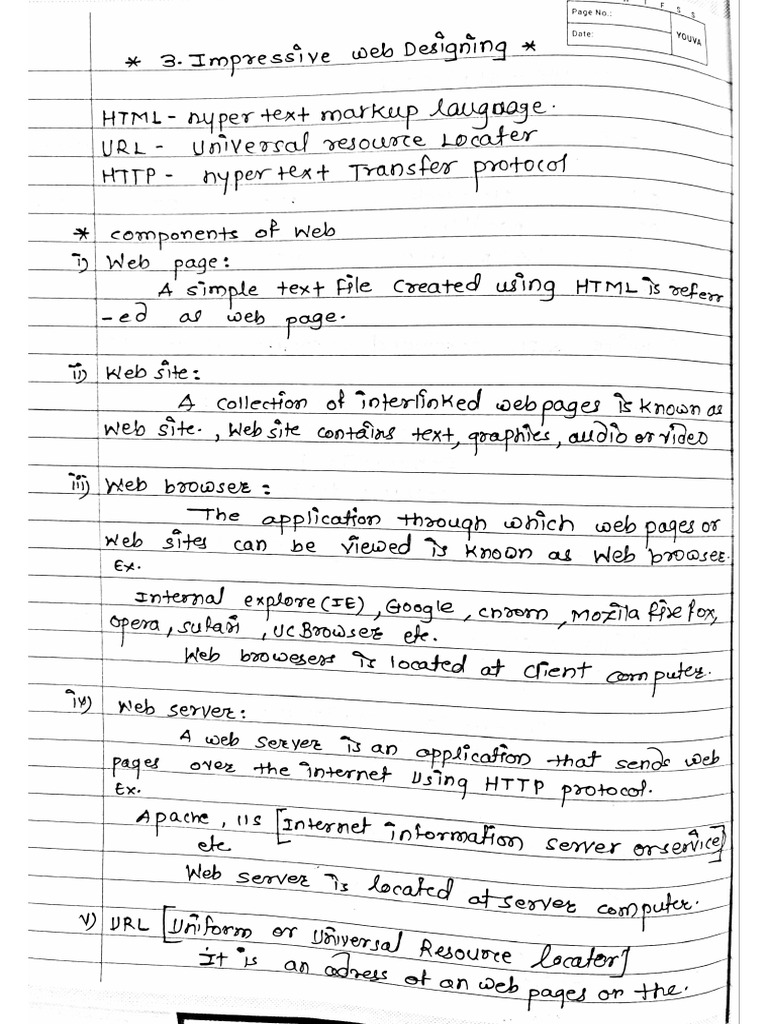 Page No.:
Date:
YOUVA
* 3. Impressive web Designing *
HTML - hyper text markup language.
URL - universal resource Locater
HTTP - hyper text Transfer protocol
* components of Web
i) Web page:
A simple text file created using HTML is referr
-ed as web page.
ii) Web site:
A collection of interlinked web pages is known as
web site., Web site contains text, graphics, audio or video
iii) Web browser:
The application through which web pages or
web sites can be viewed is known as Web browser.
Ex.
Internal explore (IE), Google, chrom, mozila firefox,
opera, sufari, UC Browser etc.
Web browesers is located at client computer.
iv) Web server:
A web server is an application that sends web
pages over the internet using HTTP protocol.
Ex.
Apache, IIS [Internet information server or service]
etc
Web server is located at server computer.
v) URL [Uniform or Universal Resource locator]
It is an adress of an web pages on the.